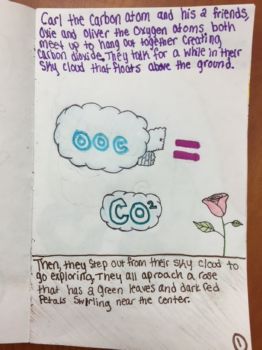 Carl the Carbon atom and his 2 friends,
Oxie and Oliver the Oxygen atoms, both
meet up to hang out together creating
Carbon dioxide. They talk for a while in their
sky cloud that floats above the ground.
OOC =
CO²
Then, they step out from their sky cloud to
go exploring. They all aproach a rose
that has a green leaves and dark red
Petals swirling near the center.
1